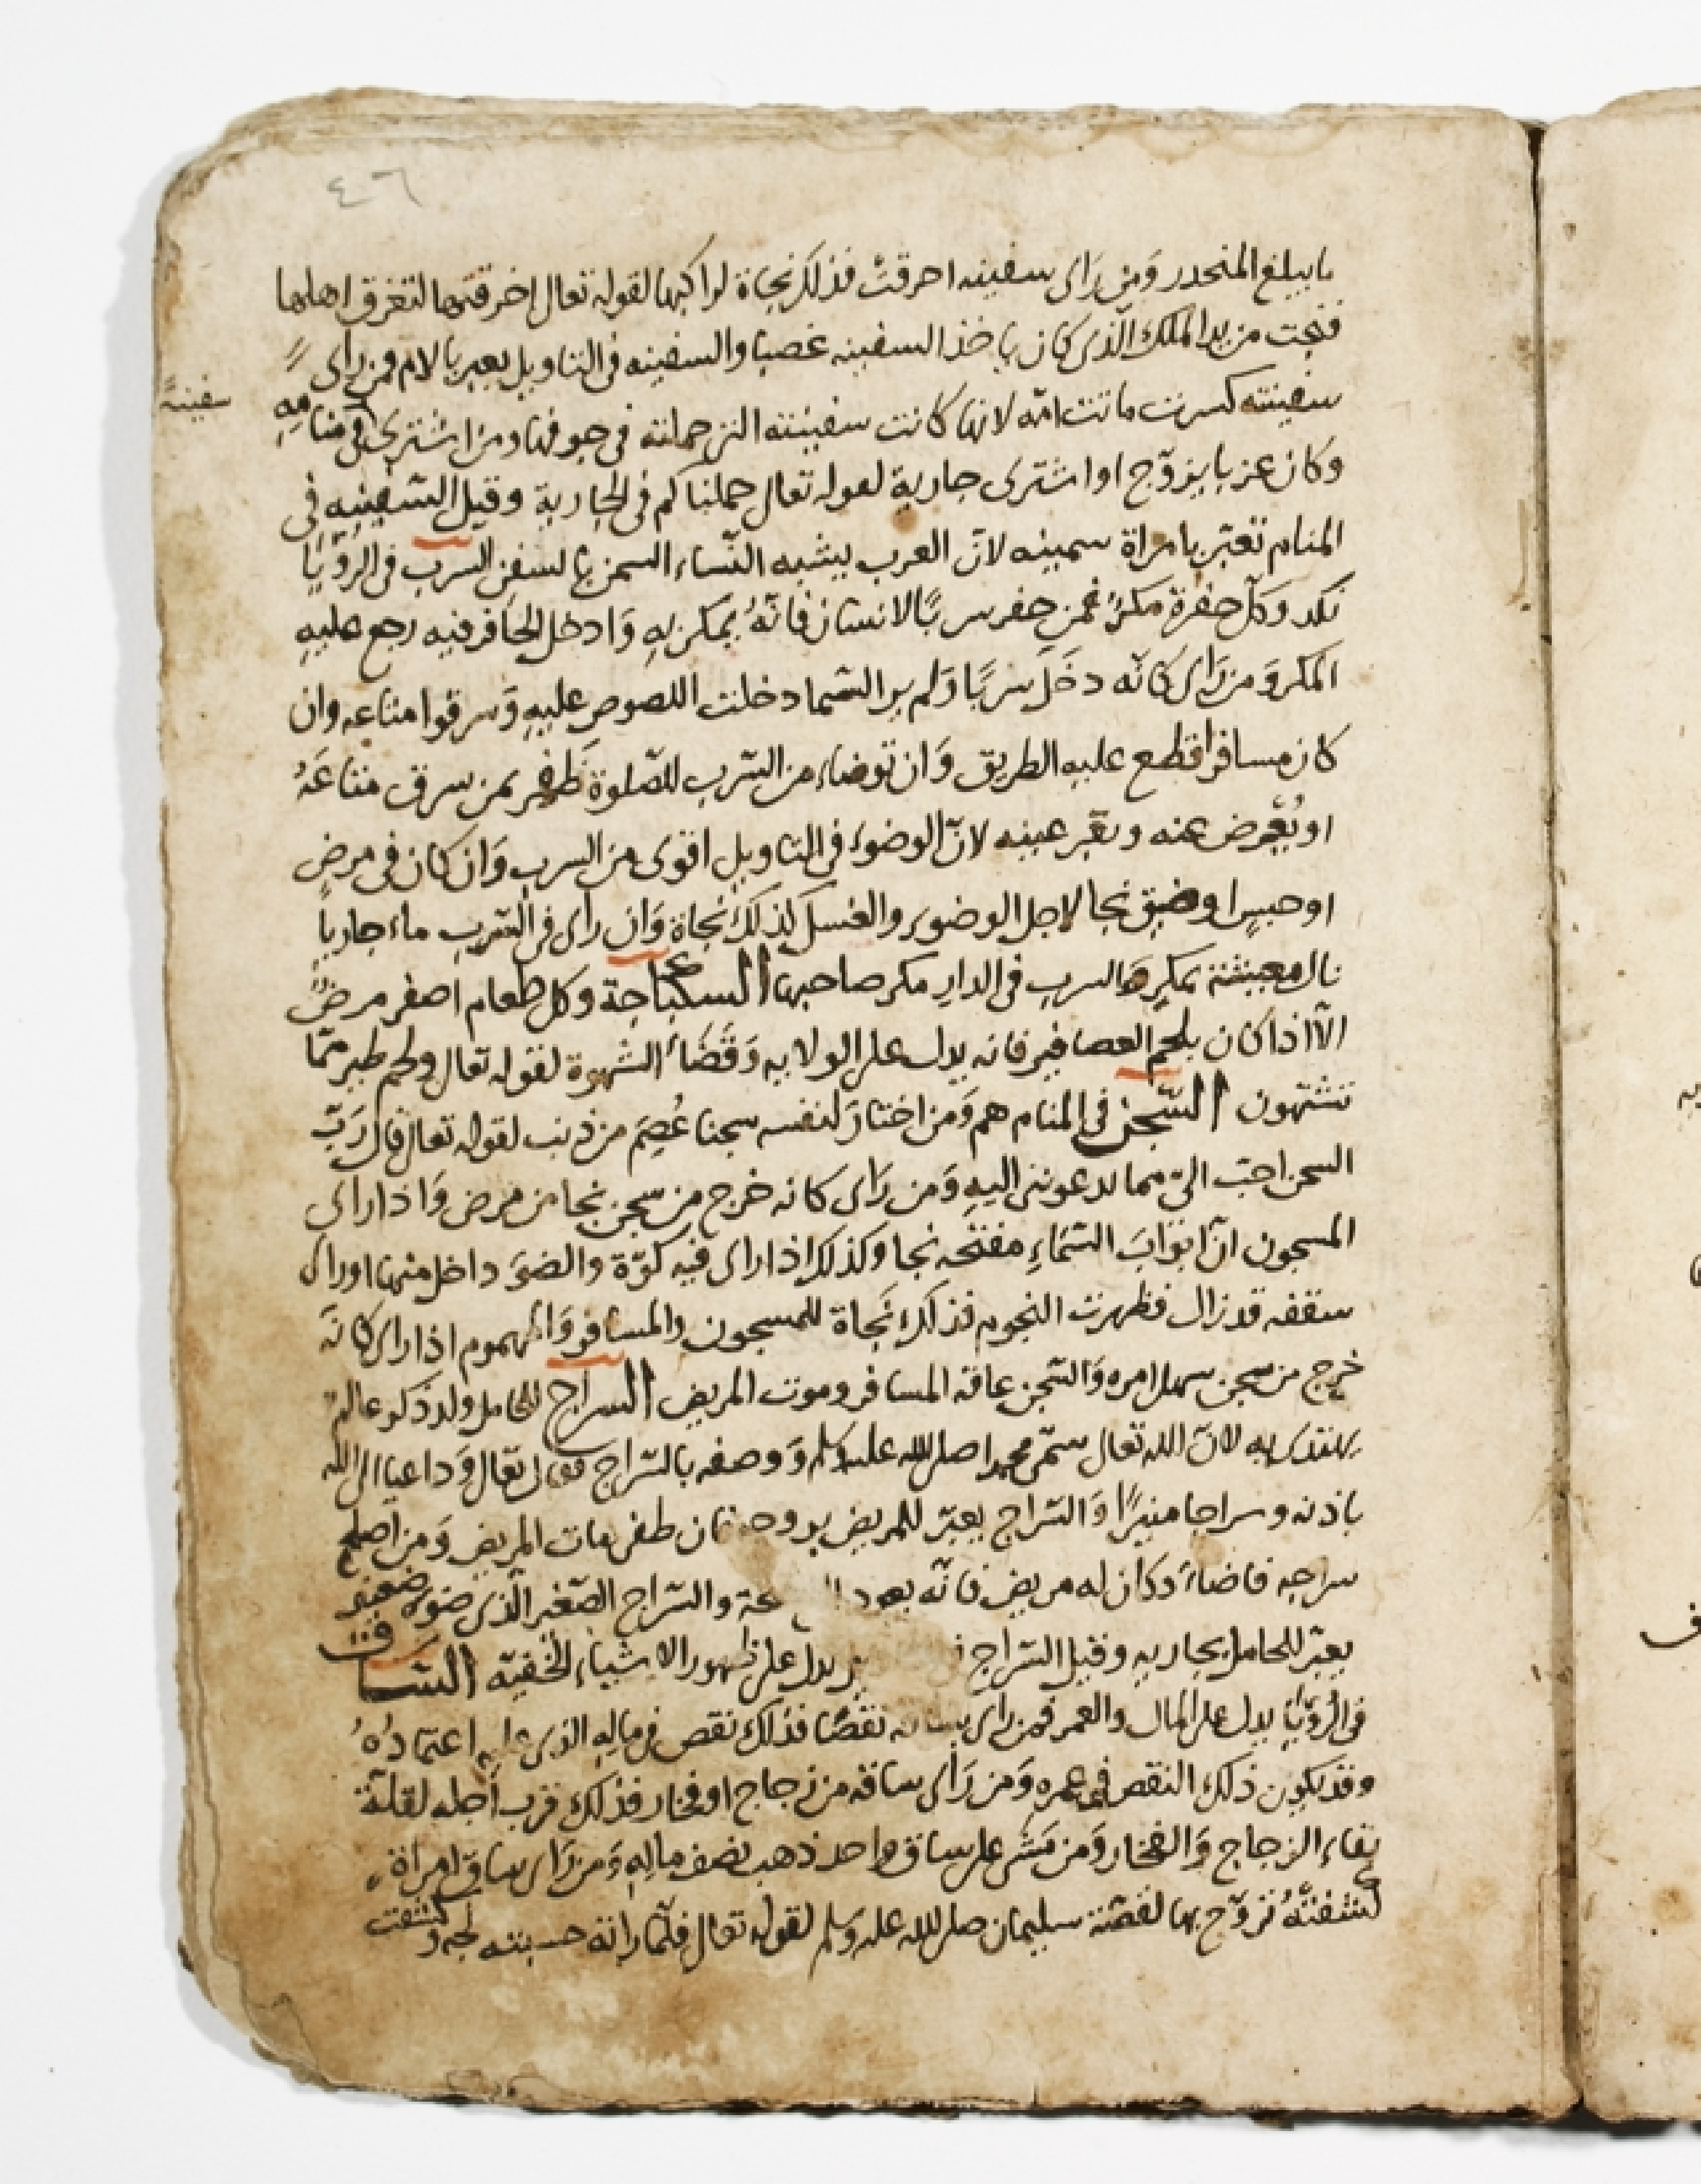 ٤٦
ما يبلغ المنحدر وَمن رَاى سفينه احرقتْ فذلك نجاة لراكبها لقوله تعالى اخرقتها لتغرق اهلها
فنجت من يد الملك الّذى كان ياخذ السفينه غصبا والسفينه فى التاويل يعبر بالام فمن راى
سفينته كسرت ماتت امّه لانها كانت سفينته التى حملته فى جوفها ومن اشترى فى منامِهِ
سفينةً
وكان عزبا يزوّج او اشترى جارية لقوله تعالى حملناكم فى الجارية وقيل السّفينه فى
المنام تعبّر بامراة سمينه لانّ العرب يشبه النّساء السمن بالسفن السرب فى الرُّؤيَا
نكد وكلّ حفرة مكرٌ فمن حفر سربًا لانسان فانّهُ يمكر بِهِ وَادخل الحافر فيه رجع عليهِ
المكر وَمن رَاى كانّه دخَلَ سَربًا وَلم ير السّما دخلت اللصوص عليهِ وَسرقوا متاعه وان
كان مسافرا قطع عليه الطريق وَان توضاء من السّرب للصّلوة ظَفِر بمن سرق متاعَهُ
او يُعوّض عنه وتقر عينه لانّ الوضوء فى التاويل اقوى من السرب وَان كان فى مرضٍ
او حبسٍ او ضيق نجا لاجل الوضوء والغسل كذلك نجاة وَان راى فى السّرب ماء جارياً
نال معيشة بمكرٍ وَالسرب فى الدار مكر صاحبها السكباجة وكل طعام اصفر مرضٌ
الّا اذا كان بلحم العصافير فانه يدل على الولايه وَقَضَاءُ الشهوة لقوله تعالى ولحم طير ممّا
تشتهون السّجن فى المنام هم وَمن اختار لنفسه سجنا عُصِمَ من ذنب لقوله تعالى قال رَبّ
السجن احبّ الىّ مما يدعوننى اليهِ وَمن رَاى كانه خرج من سجن نجا من مرض وَاذا راى
المسجون انّ ابوَابَ السّمَاءِ مفتّحه نجا وكذلك اذا راى فيه كوّة والضوَ داخل منها او راى
سقفه قد زال فظهرت النجوم فذلك نَجاة للمسجون والمسافر وَالمهموم اذا راى كانّه
خرج من سجن سهل امره وَالسّجن عاقه المسافر وموت المريض السراج للحامل ولد ذكر عالم
يهتدى به لانّ الله تعالى سمّى محمدا صلى الله عليه وسلم وَوصفه بالسّراج فقال تعالى وَداعيا الى الله
باذنه وسراجا منيرًا وَالسّراج يعبّر للمريض بروحه فان طفى مات المريض وَمن اصلح
سراجه فاضاءَ وكان له مريض فانّه يعود والسّراج الصّغير الّذى ضوءه ضعيف
يعبّر للحامل بجاريهِ وقيل السّراج يدل على ظهور الاشياء الخفيّه السّاق
فى الرُّؤيَا يدل على المال والعمر فمن راى بساقه نقصًا فذلك نقص فى مالِهِ الذى عليه اعتمادُهُ
وقد يكون ذلك النقص فى عمره وَمن رَاى ساقه من زجاج او فخار فذلك قرب اجله لقلّة
بقاء الزجاج وَالفخار وَمن مَشى على ساق واحد ذهب نصف مالِهِ وَمن رَاى ساق امراة
كشفتْهُ تزوّج بها لقصّة سليمان صلى الله عليه وَسلم لقوله تعالى فلمّا راته حسبته لجه وكشفت